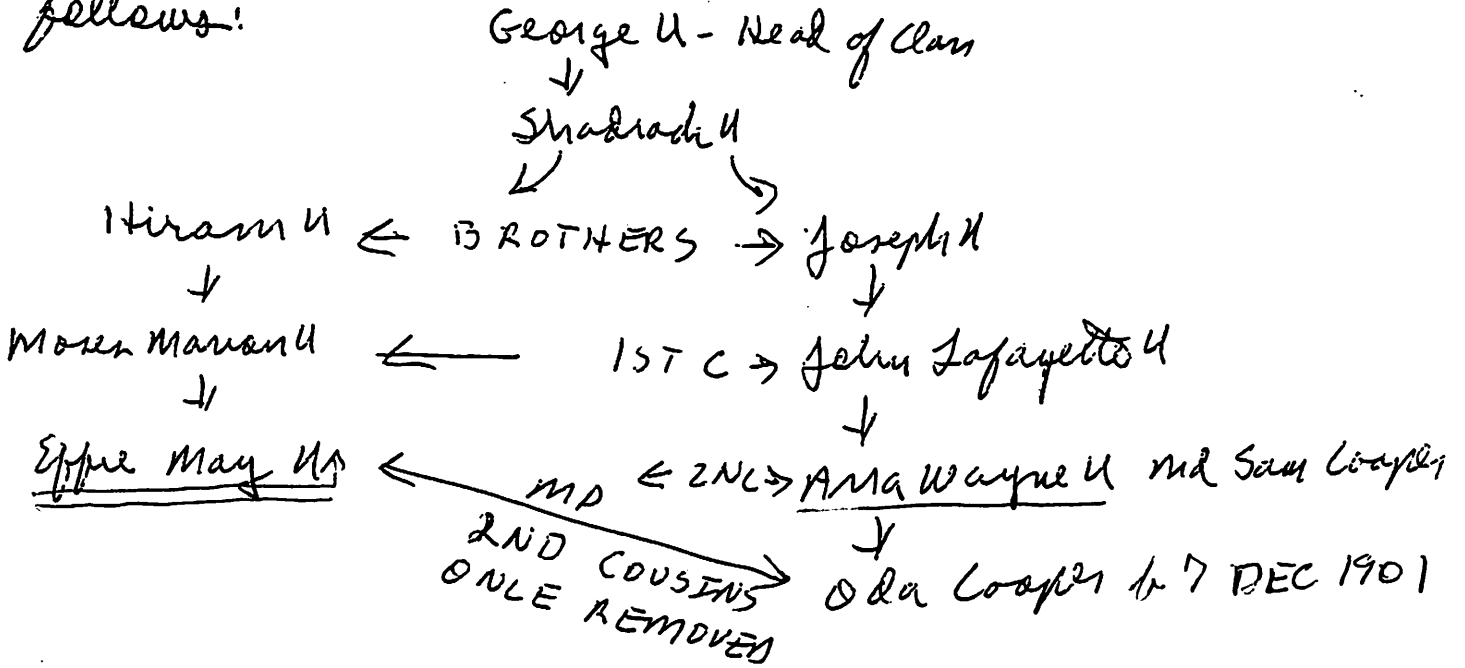 follows:
George U - Head of Clan
Shadrach U
Hiram U ← BROTHERS → Joseph U
Moses Marion U ← 1ST C → John Lafayette U
Effie May U ← 2NC → Alla Wayne U md Sam Cooper
MD
2ND COUSINS
ONCE REMOVED
Oda Cooper b 7 DEC 1901